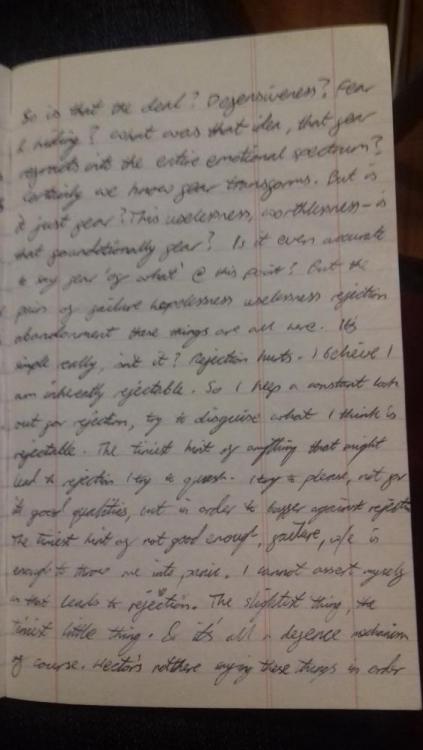 So is that the deal? Defensiveness? Fear
& hiding? What was that idea, that fear
refracts into the entire emotional spectrum?
Certainly we know fear transforms. But is
it just fear? This uselessness, worthlessness - is
that foundationally fear? Is it even accurate
to say fear 'of what' @ this point? But the
pain of failure hopelessness uselessness rejection
abandonment these things are all here. It's
simple really, isn't it? Rejection hurts. I believe I
am inherently rejectable. So I keep a constant look
out for rejection, try to disguise what I think is
rejectable. The tiniest hint of anything that might
lead to rejection I try to quash. I try to please, not for
its good qualities, but in order to buffer against rejection
The tiniest hint of not good enough, failure, w/e is
enough to throw me into panic. I cannot assert myself
as that leads to rejection. The slightest thing, the
tiniest little thing. & it's all a defence mechanism
of course. Hector's not there saying these things in order